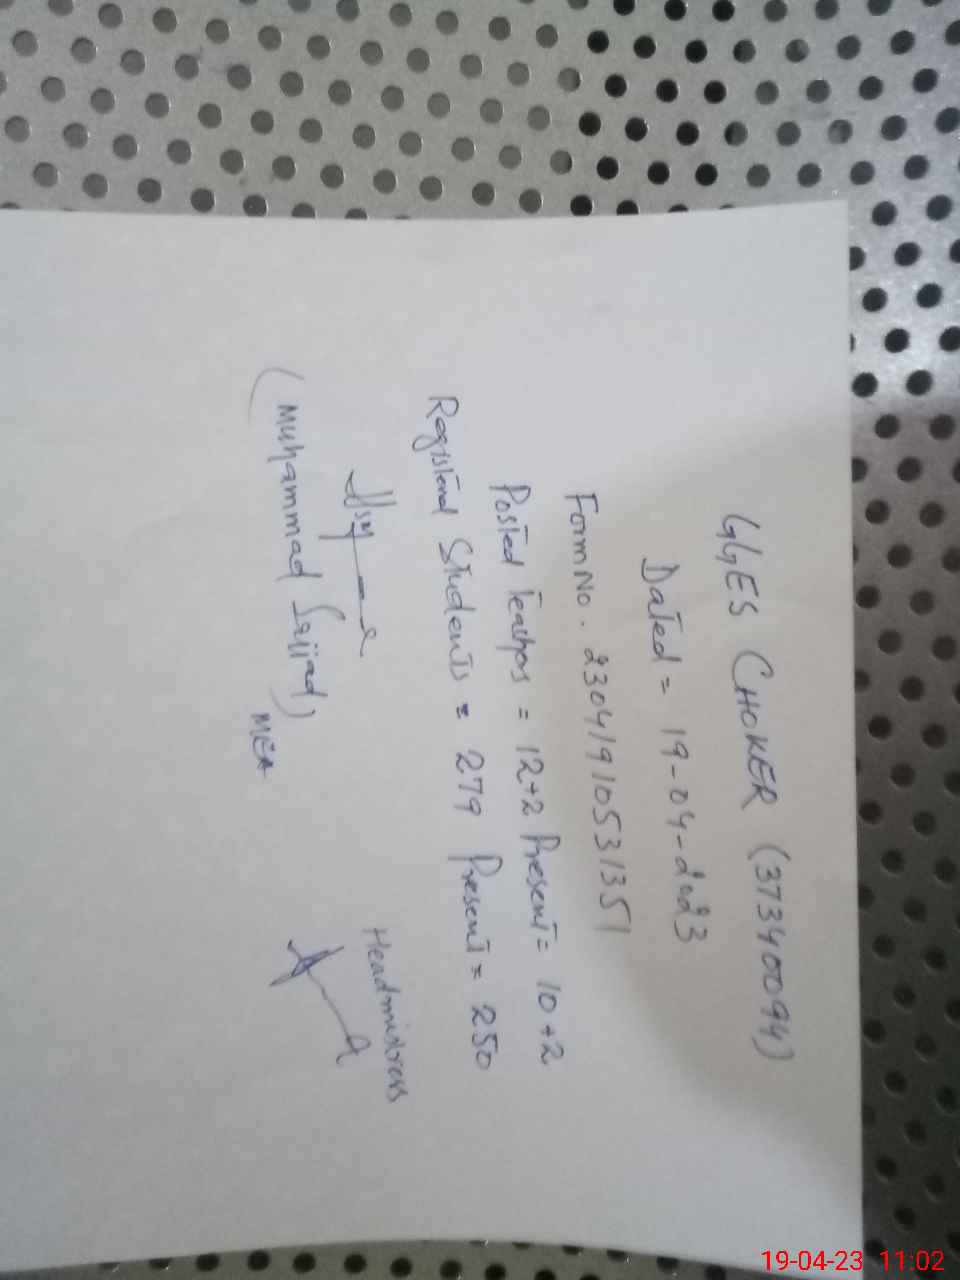 GGES CHOKER (37340094)
Dated = 19-04-2023
Form No. 23041910531351
Posted Teachers = 12+2 Present = 10+2
Registered Students = 279 Present = 250
Headmistress
(Muhammad Sajjad)
MEA
19-04-23 11:02